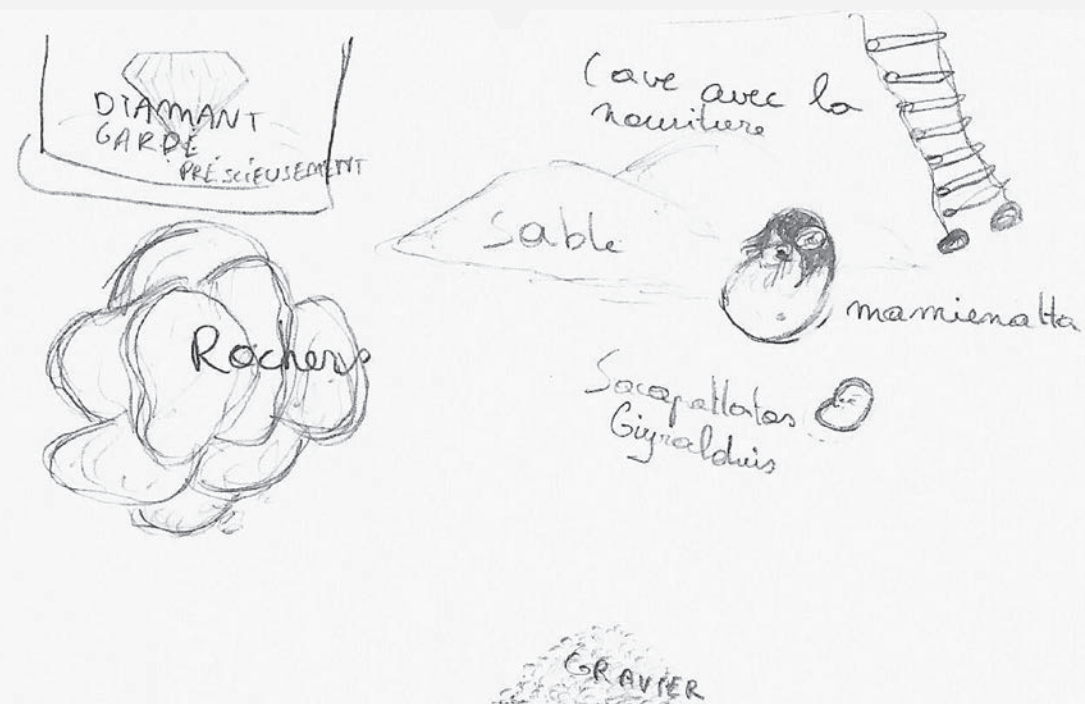 DIAMANT
GARDÉ
PRÉSCIEUSEMENT
Cave avec la
nourritere
Sable
Rochers
mamienatta
Sacapattatas
GRAVIER